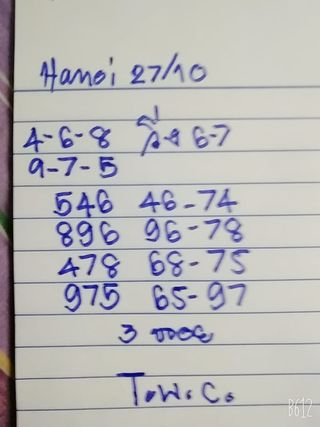 Hanoi 27/10
4-6-8 วิ่ง 6-7
9-7-5
546 46-74
896 96-78
478 68-75
975 65-97
3
T.W.C.
B612